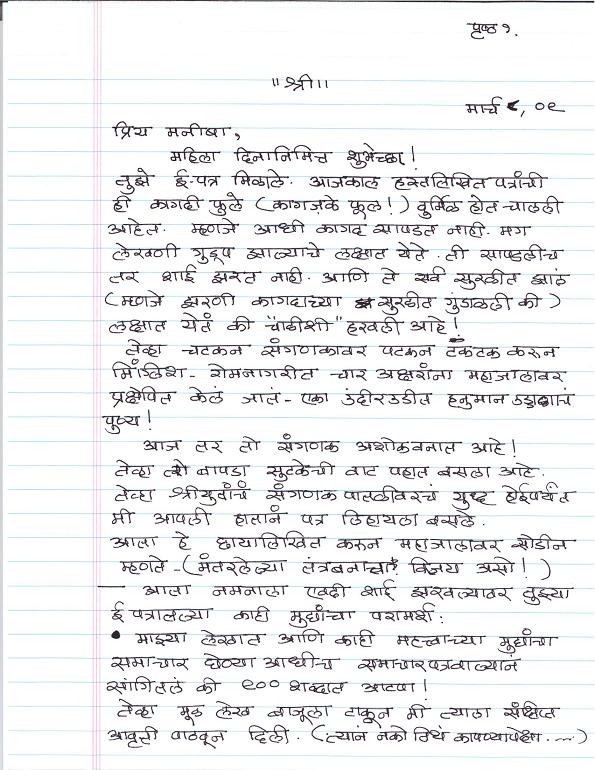 पृष्ठ १.
॥ श्री ॥
मार्च ८, ०९
प्रिय मनीषा,
महिला दिनानिमित्त शुभेच्छा!
तुझे ई-पत्र मिळाले. आजकाल हस्तलिखित पत्रांची
ही कागदी फुले (कागज़के फूल!) दुर्मिळ होत चालली
आहेत. म्हणजे आधी कागद सापडत नाही. मग
लेखणी गुडूप झाल्याचे लक्षात येते. ती सापडलीच
तर शाई झरत नाही. आणि ते सर्व सुरळीत झालं
(म्हणजे झरणी कागदाच्या सुरळीत गुंडाळली की)
लक्षात येतं की "चाळीशी" हरवली आहे!
तेव्हा चटकन संगणकावर पटकन टंकटंक करून
मिंग्लिश - रोमनागरीत चार अक्षरांना महाजालावर
प्रक्षेपित केलं जातं - एका उंदीरउडीत हनुमान उड्डाणाचं
पुण्य!
आज तर तो संगणक अशोकवनात आहे!
तेव्हा तो बापडा सुटकेची वाट पहात बसला आहे.
तेव्हा श्रीयुतांचं संगणक पातळीवरचं युद्ध होईपर्यंत
मी आपली हातानं पत्र लिहायला बसले.
आता हे छायालिखित करून महाजालावर सोडीन
म्हणते - (मंतरलेल्या तंत्रवनाचा? विजय असो!)
— आता नमनाला एवढी शाई झरवल्यावर तुझ्या
ई पत्रातल्या काही मुद्यांचा परामर्श:
• माझ्या लेखात आणि काही महत्वाच्या मुद्यांचा
समाचार घेण्या आधीच समाचारपत्रवाल्यानं
सांगितलं की ९०० शब्दात आटपा!
तेव्हा मूळ लेख बाजूला टाकून मी त्याला संक्षिप्त
आवृत्ती पाठवून दिली. (त्यानं नको तिथं कापण्यापेक्षा....)